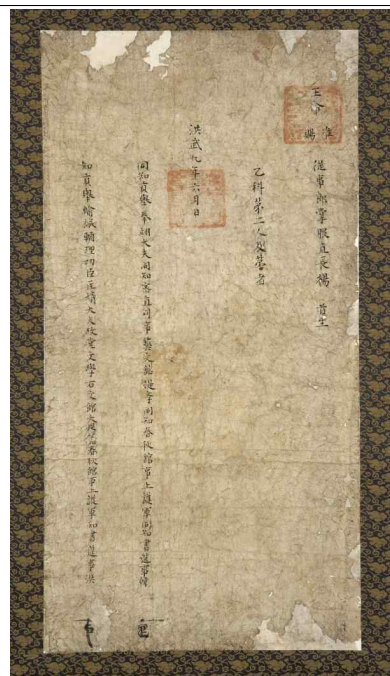 王命
准賜
從事郎掌服直長楊 首生
乙科第二人及第者
洪武九年六月 日
同知貢擧奉翊大夫同知密直司事藝文館提學同知春秋館事上護軍同知書筵事韓
知貢擧輸誠輔理功臣匡靖大夫政堂文學右文館大提學知春秋館事上護軍知書筵事洪